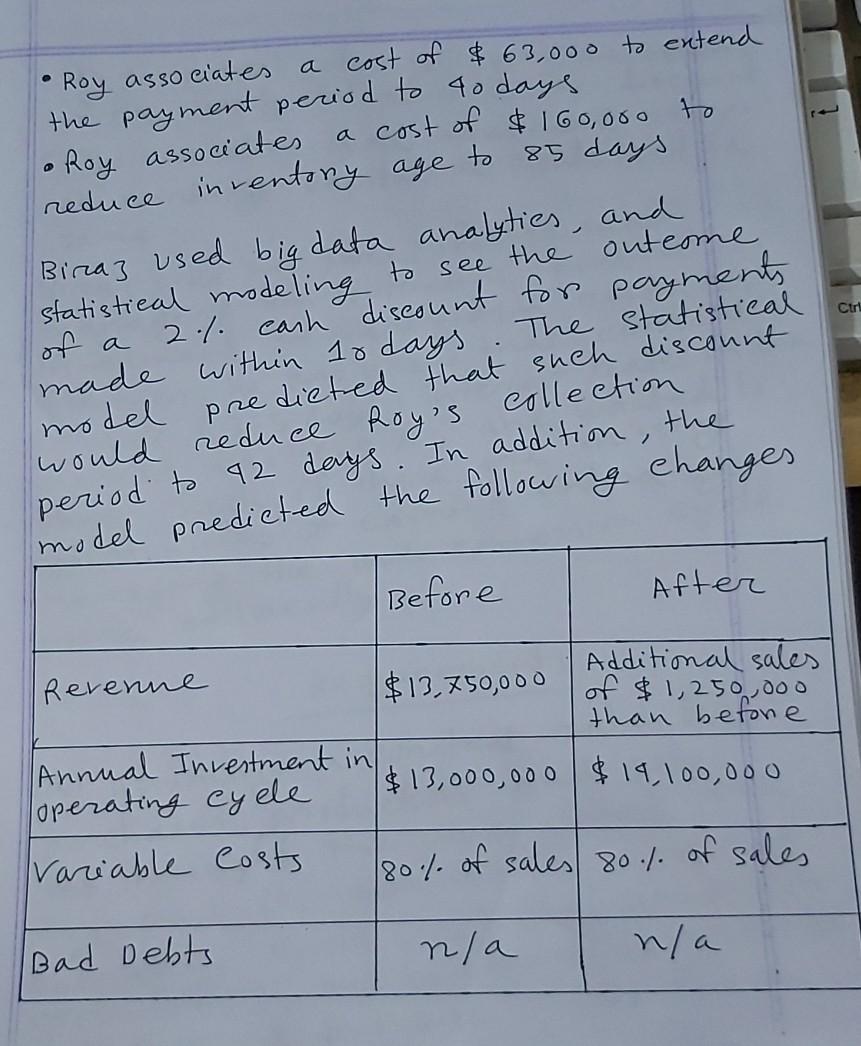 • Roy associates a cost of $ 63,000 to extend
the payment period to 40 days
• Roy associates a cost of $ 160,000 to
reduce inventory age to 85 days
Biraz used big data analytics, and
statistical modeling to see the outcome
of a 2% cash discount for payments
made within 10 days. The statistical
model predicted that such discount
would reduce Roy's collection
period to 42 days. In addition, the
model predicted the following changes
Before
After
Revenue
$13,750,000
Additional sales
of $ 1,250,000
than before
Annual Investment in
operating cycle
$ 13,000,000
$ 14,100,000
Variable Costs
80% of sales
80% of sales
Bad Debts
n/a
n/a
Ctrl